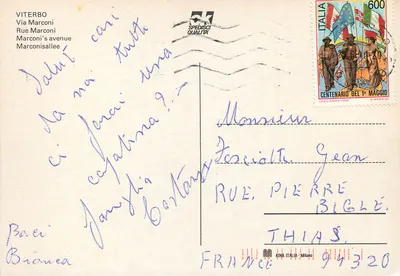 VITERBO
Via Marconi
Rue Marconi
Marconi's avenue
Marconisallee
SPEDISCI
QUALITÀ
ITALIA
600
CENTENARIO DEL 1º MAGGIO
Saluti cari
da noi tutti
ci farai una
capatina? -
famiglia
Baci
Bianca
Monsieur
Jean
RUE. PIERRE
BIGLE.
THIAS.
FRANCE 94320
ROMA ITALIA - Milano